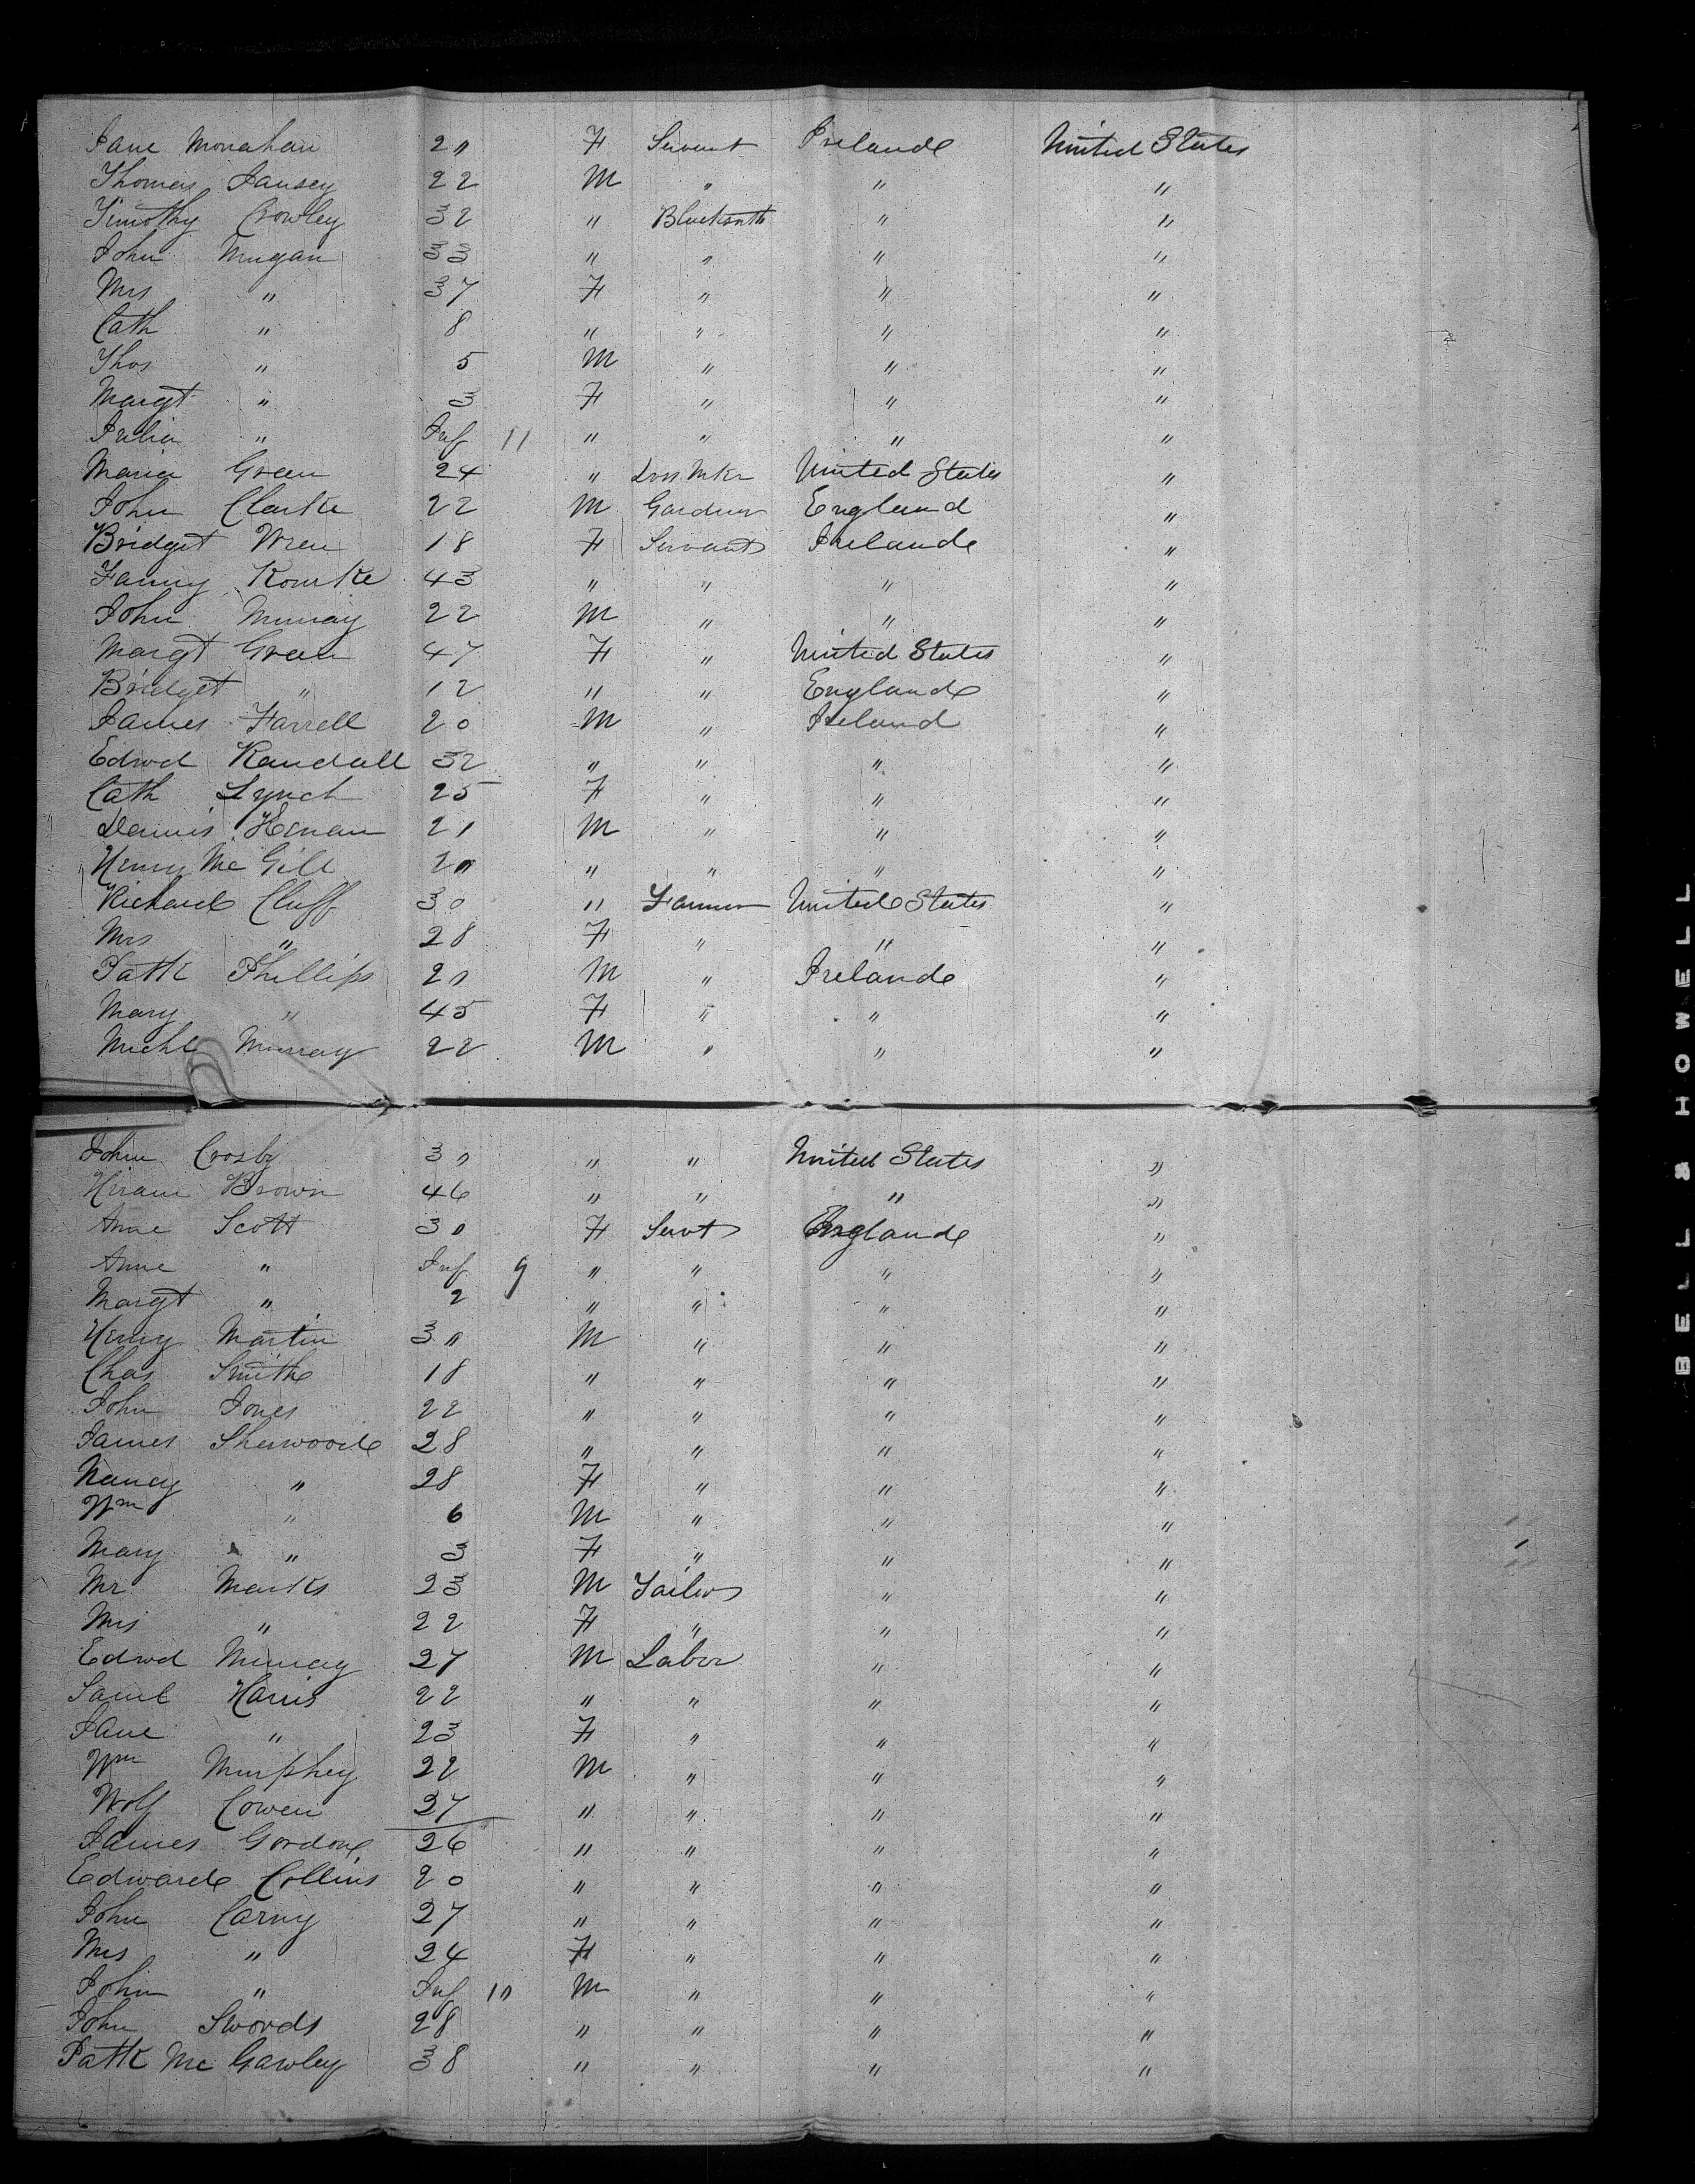 Jane Monahan 20 F Servant Ireland United States
Thomas 22 M " " "
Timothy Crowley 32 " Blacksmth " "
John Mugan 33 " " " "
Mrs " 37 F " " "
Cath " 8 " " " "
Thos " 5 M " " "
Margt " 3 F " " "
Julia " Inf 11 " " " "
Maria Green 24 " United States "
John Clarke 22 M Gardner England "
Bridget Wren 18 F Servant Ireland "
Fanny Rourke 43 " " " "
John Murray 22 M " " "
Margt Green 47 F " United States "
Bridget " 12 " " England "
James Farrell 20 M " Ireland "
Edwd Randall 32 " " " "
Cath Lynch 25 F " " "
Dennis Henan 21 M " " "
Henry McGill 20 " " " "
Richard Cluff 30 " Farmer United States "
Mrs " 28 F " " "
Patk Phillips 20 M " Ireland "
Mary " 45 F " " "
Michl Murray 22 M " " "
John Crosby 30 " " United States "
Hiram Brown 46 " " " "
Anne Scott 30 F Servt England "
Anne " Inf 9 " " " "
Margt " 2 " " " "
Henry Martin 30 M " " "
Chas Smith 18 " " " "
John Jones 22 " " " "
James Sherwood 28 " " " "
Nancy " 28 F " " "
Wm " 6 M " " "
Mary " 3 F " " "
Mr Marks 23 M Tailor " "
Mrs " 22 F " " "
Edwd Murray 27 M Labor " "
Saml Harris 22 " " " "
Jane " 23 F " " "
Wm Murphey 22 M " " "
Wolf Cowen 27 " " " "
James Gordon 26 " " " "
Edward Collins 20 " " " "
John Carny 27 " " " "
Mrs " 24 F " " "
John " Inf 10 M " " "
John Swords 28 " " " "
Patk McGawley 38 " " " "
BELL & HOWELL